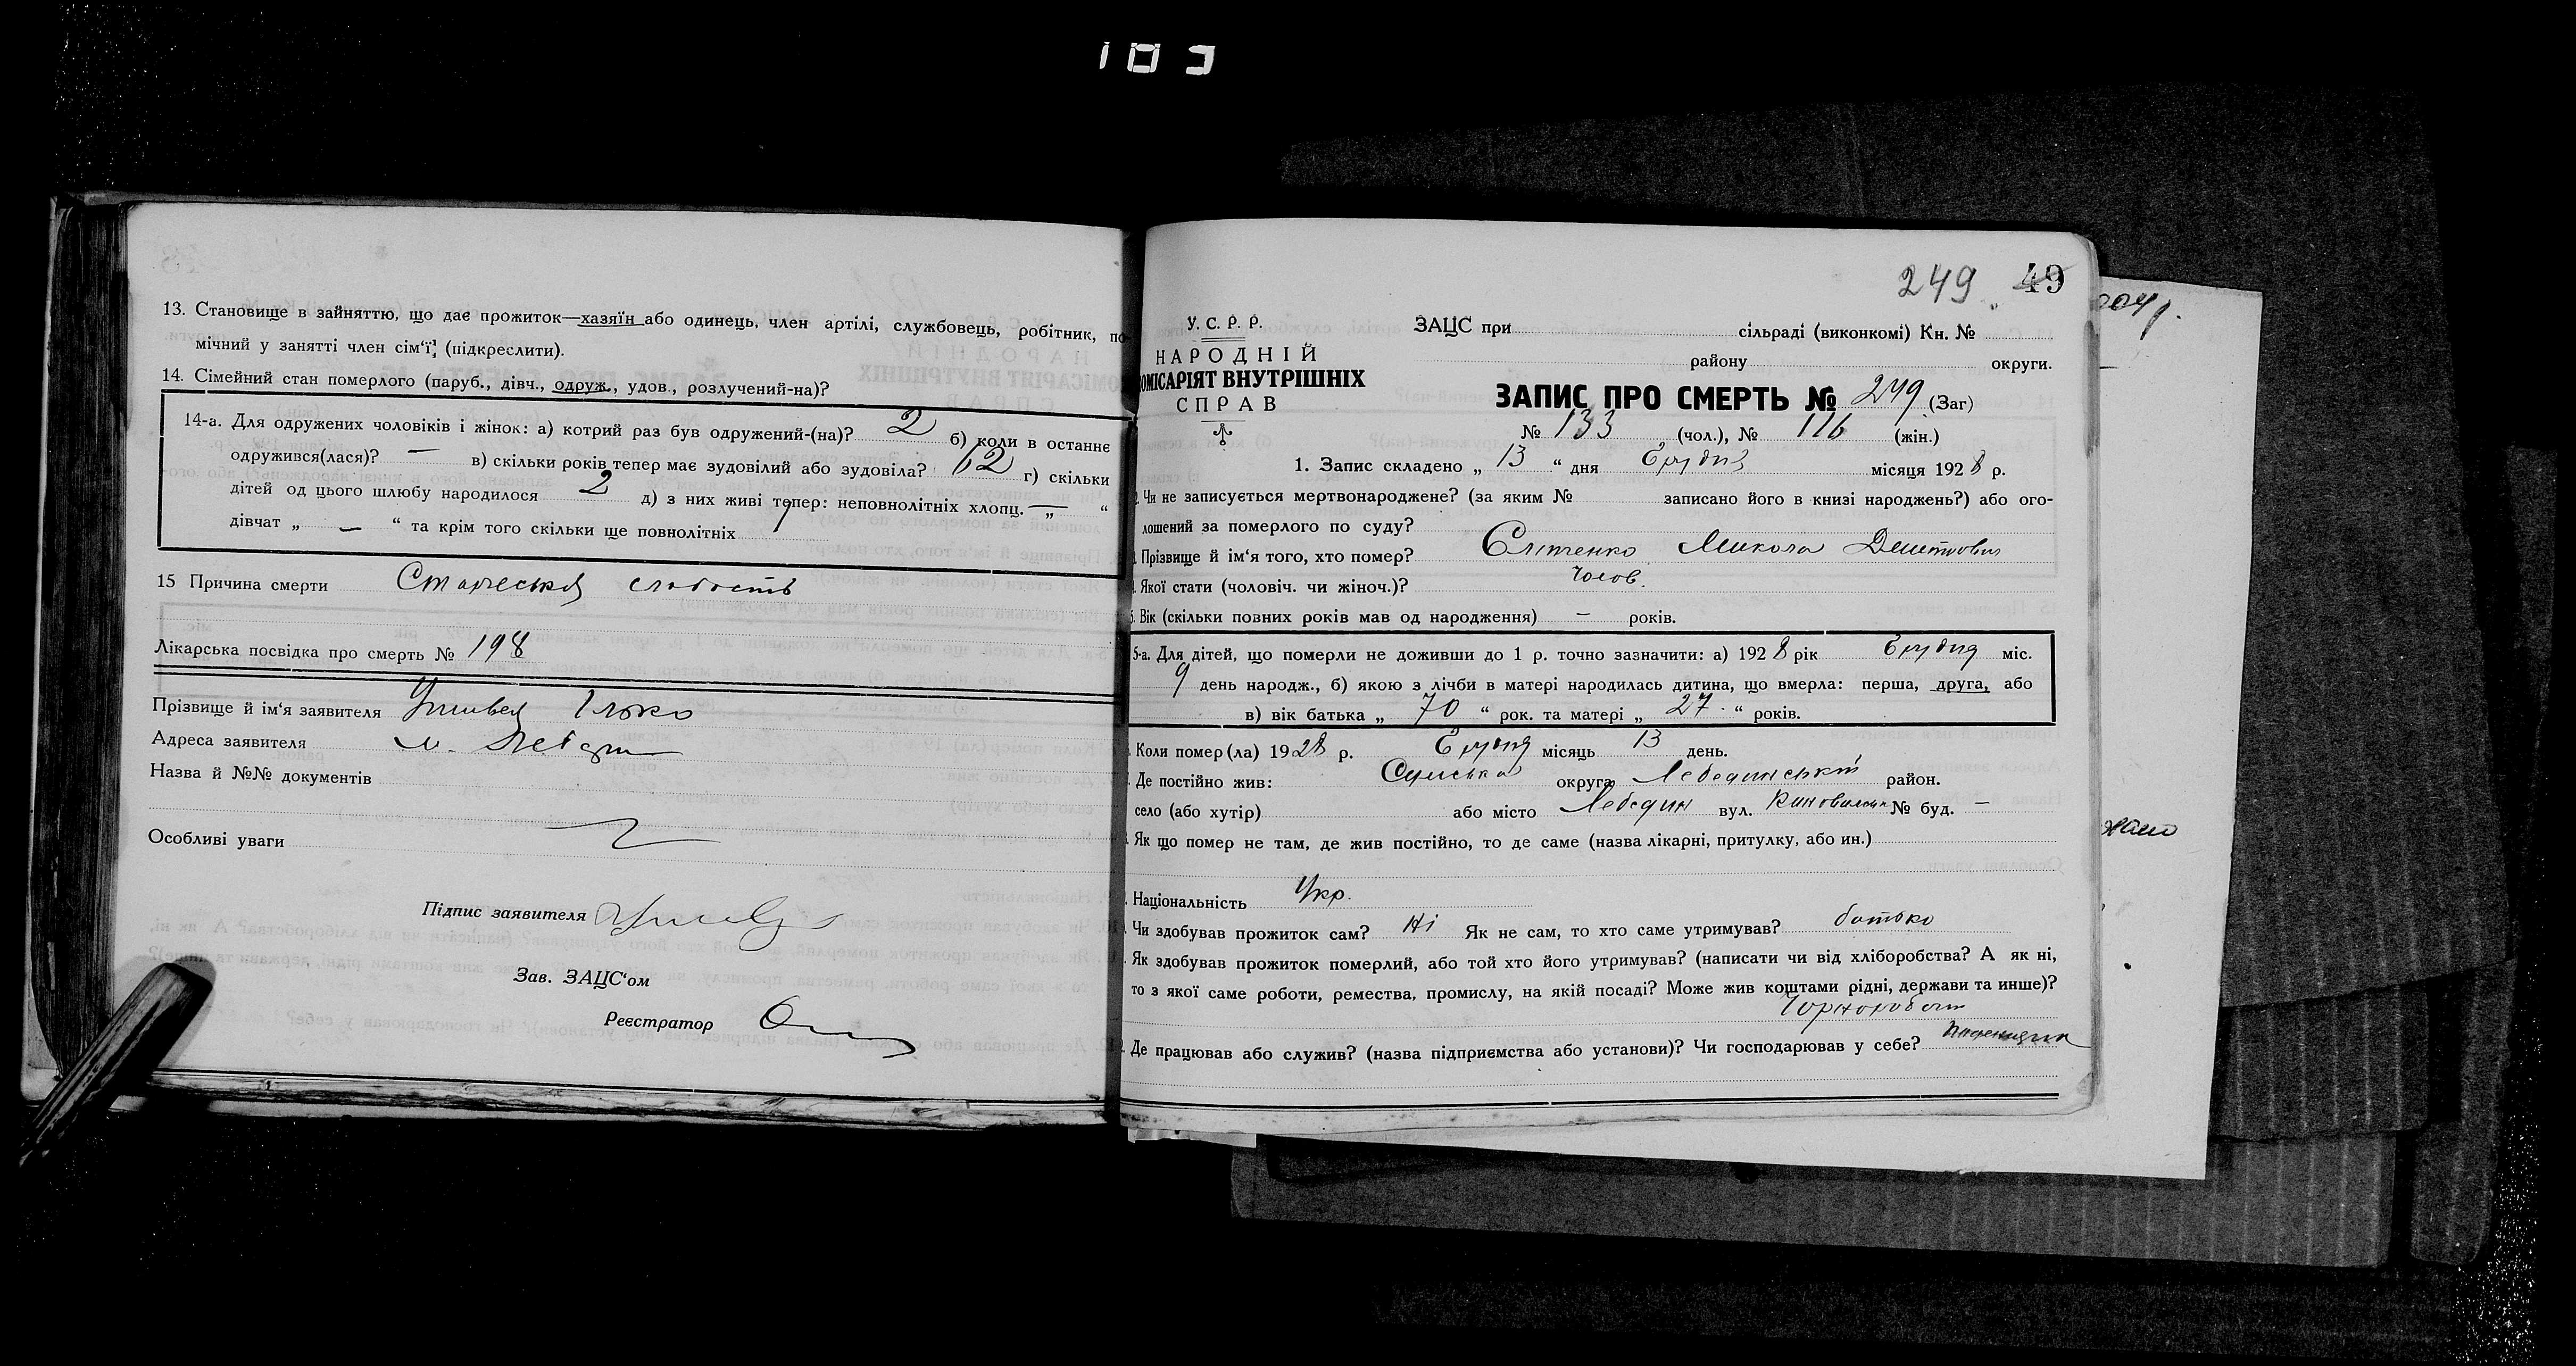 103
13. Становище в зайняттю, що дає прожиток—хазяїн або одинець, член артілі, службовець, робітник, по-
мічний у занятті член сім'ї, (підкреслити).
14. Сімейний стан померлого (паруб., дівч., одруж., удов., розлучений-на)?
14-а. Для одружених чоловіків і жінок: а) котрий раз був одружений-(на)? 2 б) коли в останнє
одружився(лася)? — в) скільки років тепер має зудовілий або зудовіла? 62 г) скільки
дітей од цього шлюбу народилося 2 д) з них живі тепер: неповнолітніх хлопц. „ — “
дівчат „ — “ та крім того скільки ще повнолітніх 1
15 Причина смерти Старческая слабость
Лікарська посвідка про смерть № 198
Прізвище й ім'я заявителя Ілько
Адреса заявителя м. Лебедин
Назва й №№ документів
Особливі уваги
Підпис заявителя
Зав. ЗАЦС'ом
Реєстратор
249 49
У. С. Р. Р.
НАРОДНІЙ
ОМІСАРІЯТ ВНУТРІШНІХ
СПРАВ
ЗАЦС при сільраді (виконкомі) Кн. №
району округи.
ЗАПИС ПРО СМЕРТЬ № 249 (Заг)
№ 133 (чол.), № 116 (жін.)
1. Запис складено „ 13 “ дня Грудня місяця 1928 р.
Чи не записується мертвонароджене? (за яким № записано його в книзі народжень?) або ого-
лошений за померлого по суду?
Прізвище й ім'я того, хто помер? Микола Дмитрович
Якої стати (чоловіч. чи жіноч.)? Чолов.
Вік (скільки повних років мав од народження) — років.
5-а. Для дітей, що померли не доживши до 1 р. точно зазначити: а) 1928 рік Грудня міс.
9 день народж., б) якою з лічби в матері народилась дитина, що вмерла: перша, друга, або
в) вік батька „ 70 “ рок. та матері „ 27 “ років.
Коли помер (ла) 1928 р. Грудня місяць 13 день.
Де постійно жив: Сумська округа Лебединський район.
село (або хутір) або місто Лебедин вул. № буд. —
Як що помер не там, де жив постійно, то де саме (назва лікарні, притулку, або ин.)
Національність Укр.
Чи здобував прожиток сам? Ні Як не сам, то хто саме утримував? батько
Як здобував прожиток померлий, або той хто його утримував? (написати чи від хліборобства? А як ні,
то з якої саме роботи, ремества, промислу, на якій посаді? Може жив коштами рідні, держави та инше)?
Чорнороб
Де працював або служив? (назва підприємства або установи)? Чи господарював у себе?